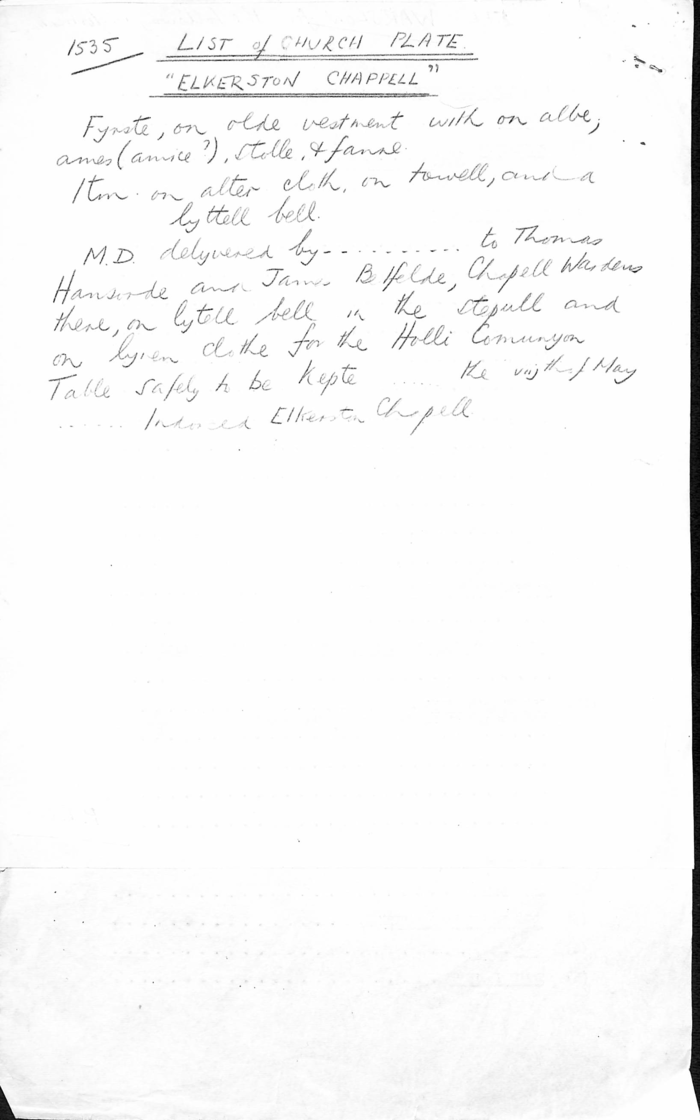 1535 LIST of CHURCH PLATE.
"ELKERSTON CHAPPELL"
Fyrste, on olde vestment with on albe,
ames (amice?), stolle, & fanne.
Itm. on alter cloth, on towell, and a
lyttell bell.
M.D. delyvered by - - - - - - - - - - - to Thomas
and James Chapell Wardens
there, on lytell bell in the stepull and
on clothe for the Holli Comunyon
Table safely to be Kepte ...... the of May
....... Indorced Elkerston Chapell